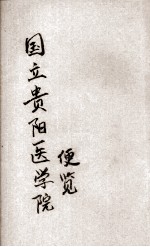 国立贵阳医学院
便览